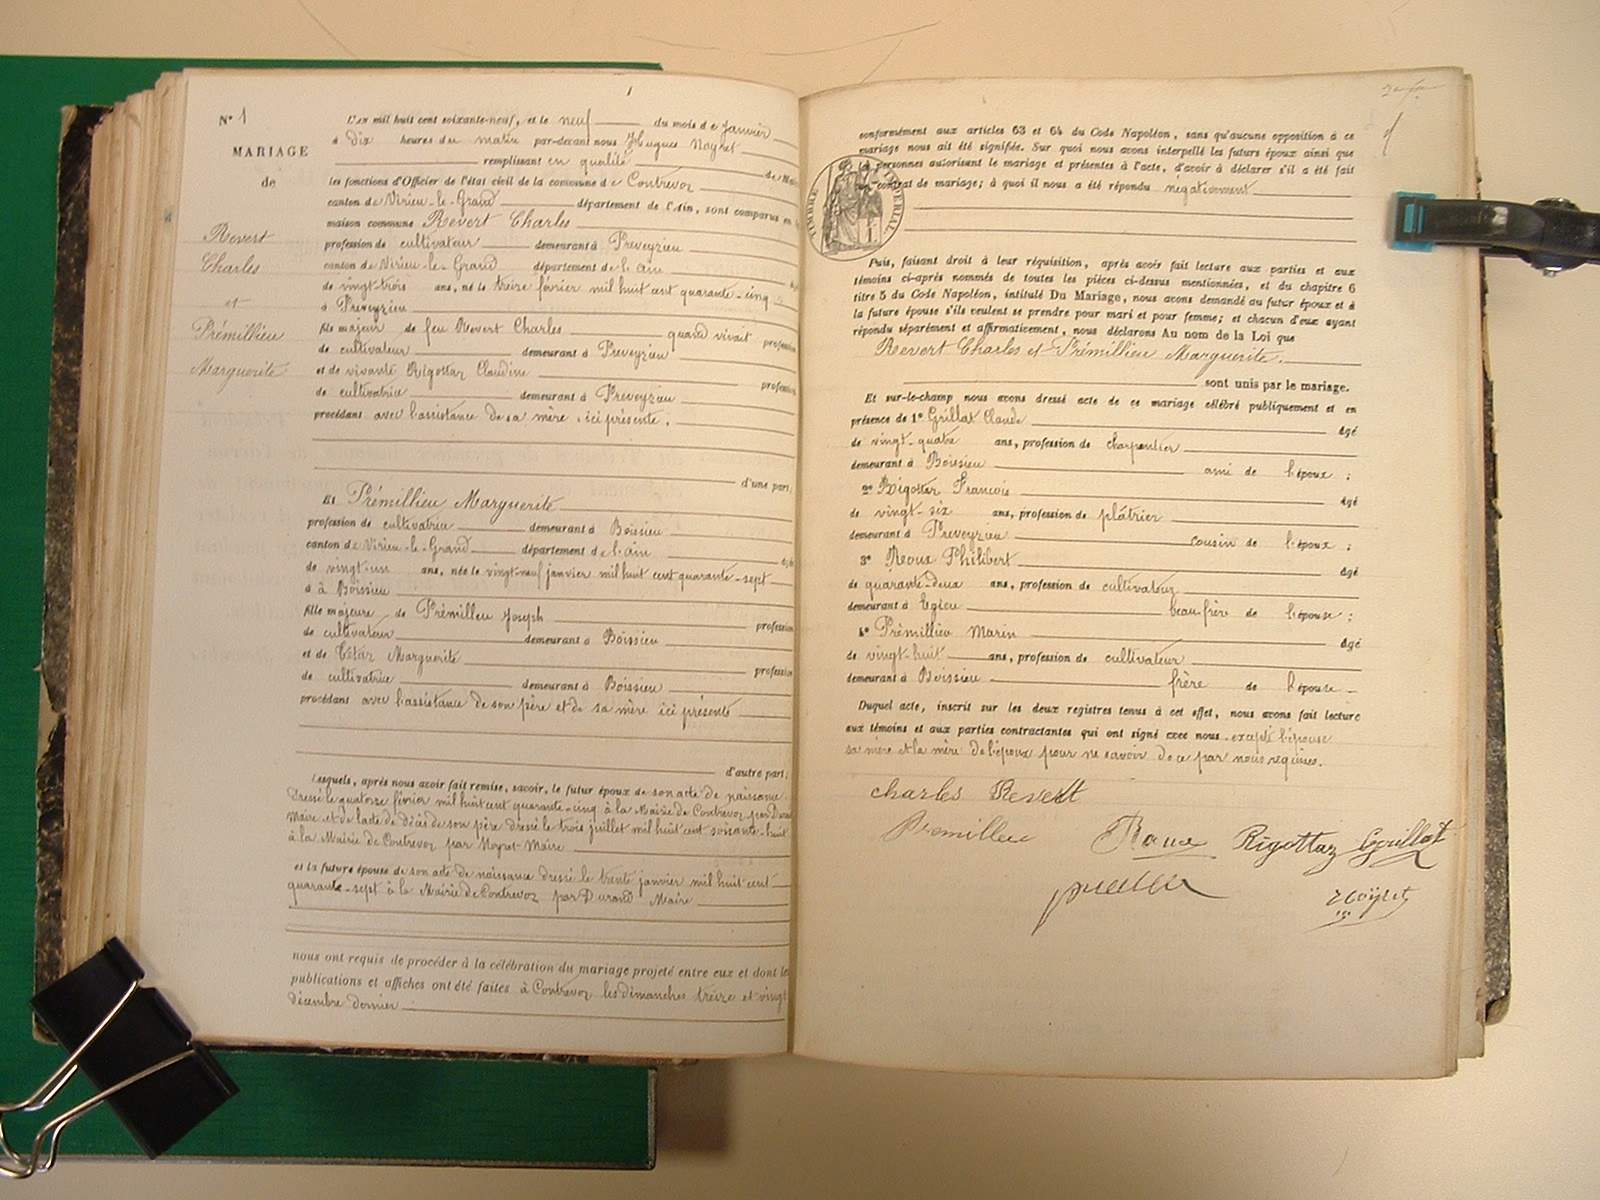 1
N° 1
MARIAGE
de
Revert
Charles
et
Prémillieu
Marguerite
L'an mil huit cent soixante-neuf, et le neuf du mois de Janvier
à dix heures du matin par-devant nous Hugues Noyret
remplissant en qualité de M
les fonctions d'Officier de l'état civil de la commune de Contrevoz
canton de Virieu-le-Grand département de l'Ain, sont comparus en
maison commune Revert Charles
profession de cultivateur demeurant à Preveyzieu
canton de Virieu-le-Grand département de l'ain
de vingt-trois ans, né le treize février mil huit cent quarante-cinq
à Preveyzieu
fils majeur de feu Revert Charles quand vivait profession
de cultivateur demeurant à Preveyzieu
et de vivante Rigottaz Claudine profession
de cultivatrice demeurant à Preveyzieu
procédant avec l'assistance de sa mère, ici présente.
d'une part;
Et Prémillieu Marguerite
profession de cultivatrice demeurant à Boissieu
canton de Virieu-le-Grand département de l'ain
de vingt-un ans, née le vingt-neuf janvier mil huit cent quarante-sept
à à Boissieu
fille majeure de Prémilleu Joseph profession
de cultivateur demeurant à Boissieu
et de Marguerite profession
de cultivatrice demeurant à Boissieu
procédant avec l'assistance de son père et de sa mère ici présente
d'autre part;
Lesquels, après nous avoir fait remise, savoir, le futur époux de son acte de naissance
dressé le quatorze février mil huit cent quarante-cinq à la Mairie de Contrevoz par Durand
Maire et de l'acte de décès de son père dressé le trois juillet mil huit cent soixante-huit
à la Mairie de Contrevoz par Noyret Maire
et la future épouse de son acte de naissance dressé le trente janvier mil huit cent
quarante-sept à la Mairie de Contrevoz par Durand Maire
nous ont requis de procéder à la célébration du mariage projeté entre eux et dont les
publications et affiches ont été faites à Contrevoz les dimanches treize et vingt
décembre dernier
conformément aux articles 63 et 64 du Code Napoléon, sans qu'aucune opposition à ce
mariage nous ait été signifiée. Sur quoi nous avons interpellé les futurs époux ainsi que
personnes autorisant le mariage et présentes à l'acte, d'avoir à déclarer s'il a été fait
contrat de mariage; à quoi il nous a été répondu négativement
TIMBRE IMPERIAL
Puis, faisant droit à leur réquisition, après avoir fait lecture aux parties et aux
témoins ci-après nommés de toutes les pièces ci-dessus mentionnées, et du chapitre 6
titre 5 du Code Napoléon, intitulé Du Mariage, nous avons demandé au futur époux et à
la future épouse s'ils veulent se prendre pour mari et pour femme; et chacun d'eux ayant
répondu séparément et affirmativement, nous déclarons Au nom de la Loi que
Revert Charles et Prémillieu Marguerite.
sont unis par le mariage.
Et sur-le-champ nous avons dressé acte de ce mariage célébré publiquement et en
présence de 1° Grillat Claude âgé
de vingt-quatre ans, profession de charpentier
demeurant à Boissieu ami de l'époux;
2° Rigottaz Francois âgé
de vingt-six ans, profession de plâtrier
demeurant à Preveyzieu cousin de l'époux;
3° Roux Philibert âgé
de quarante-deux ans, profession de cultivateur
demeurant à beau-frère de l'épouse;
4° Prémillieu Marin âgé
de vingt-huit ans, profession de cultivateur
demeurant à Boissieu frère de l'épouse
Duquel acte, inscrit sur les deux registres tenus à cet effet, nous avons fait lecture
aux témoins et aux parties contractantes qui ont signé avec nous excepté l'épouse
sa mère et la mère de l'époux pour ne savoir de ce par nous requises.
charles Revert
Premillieu
Roux Rigottaz Grillat
Noyret